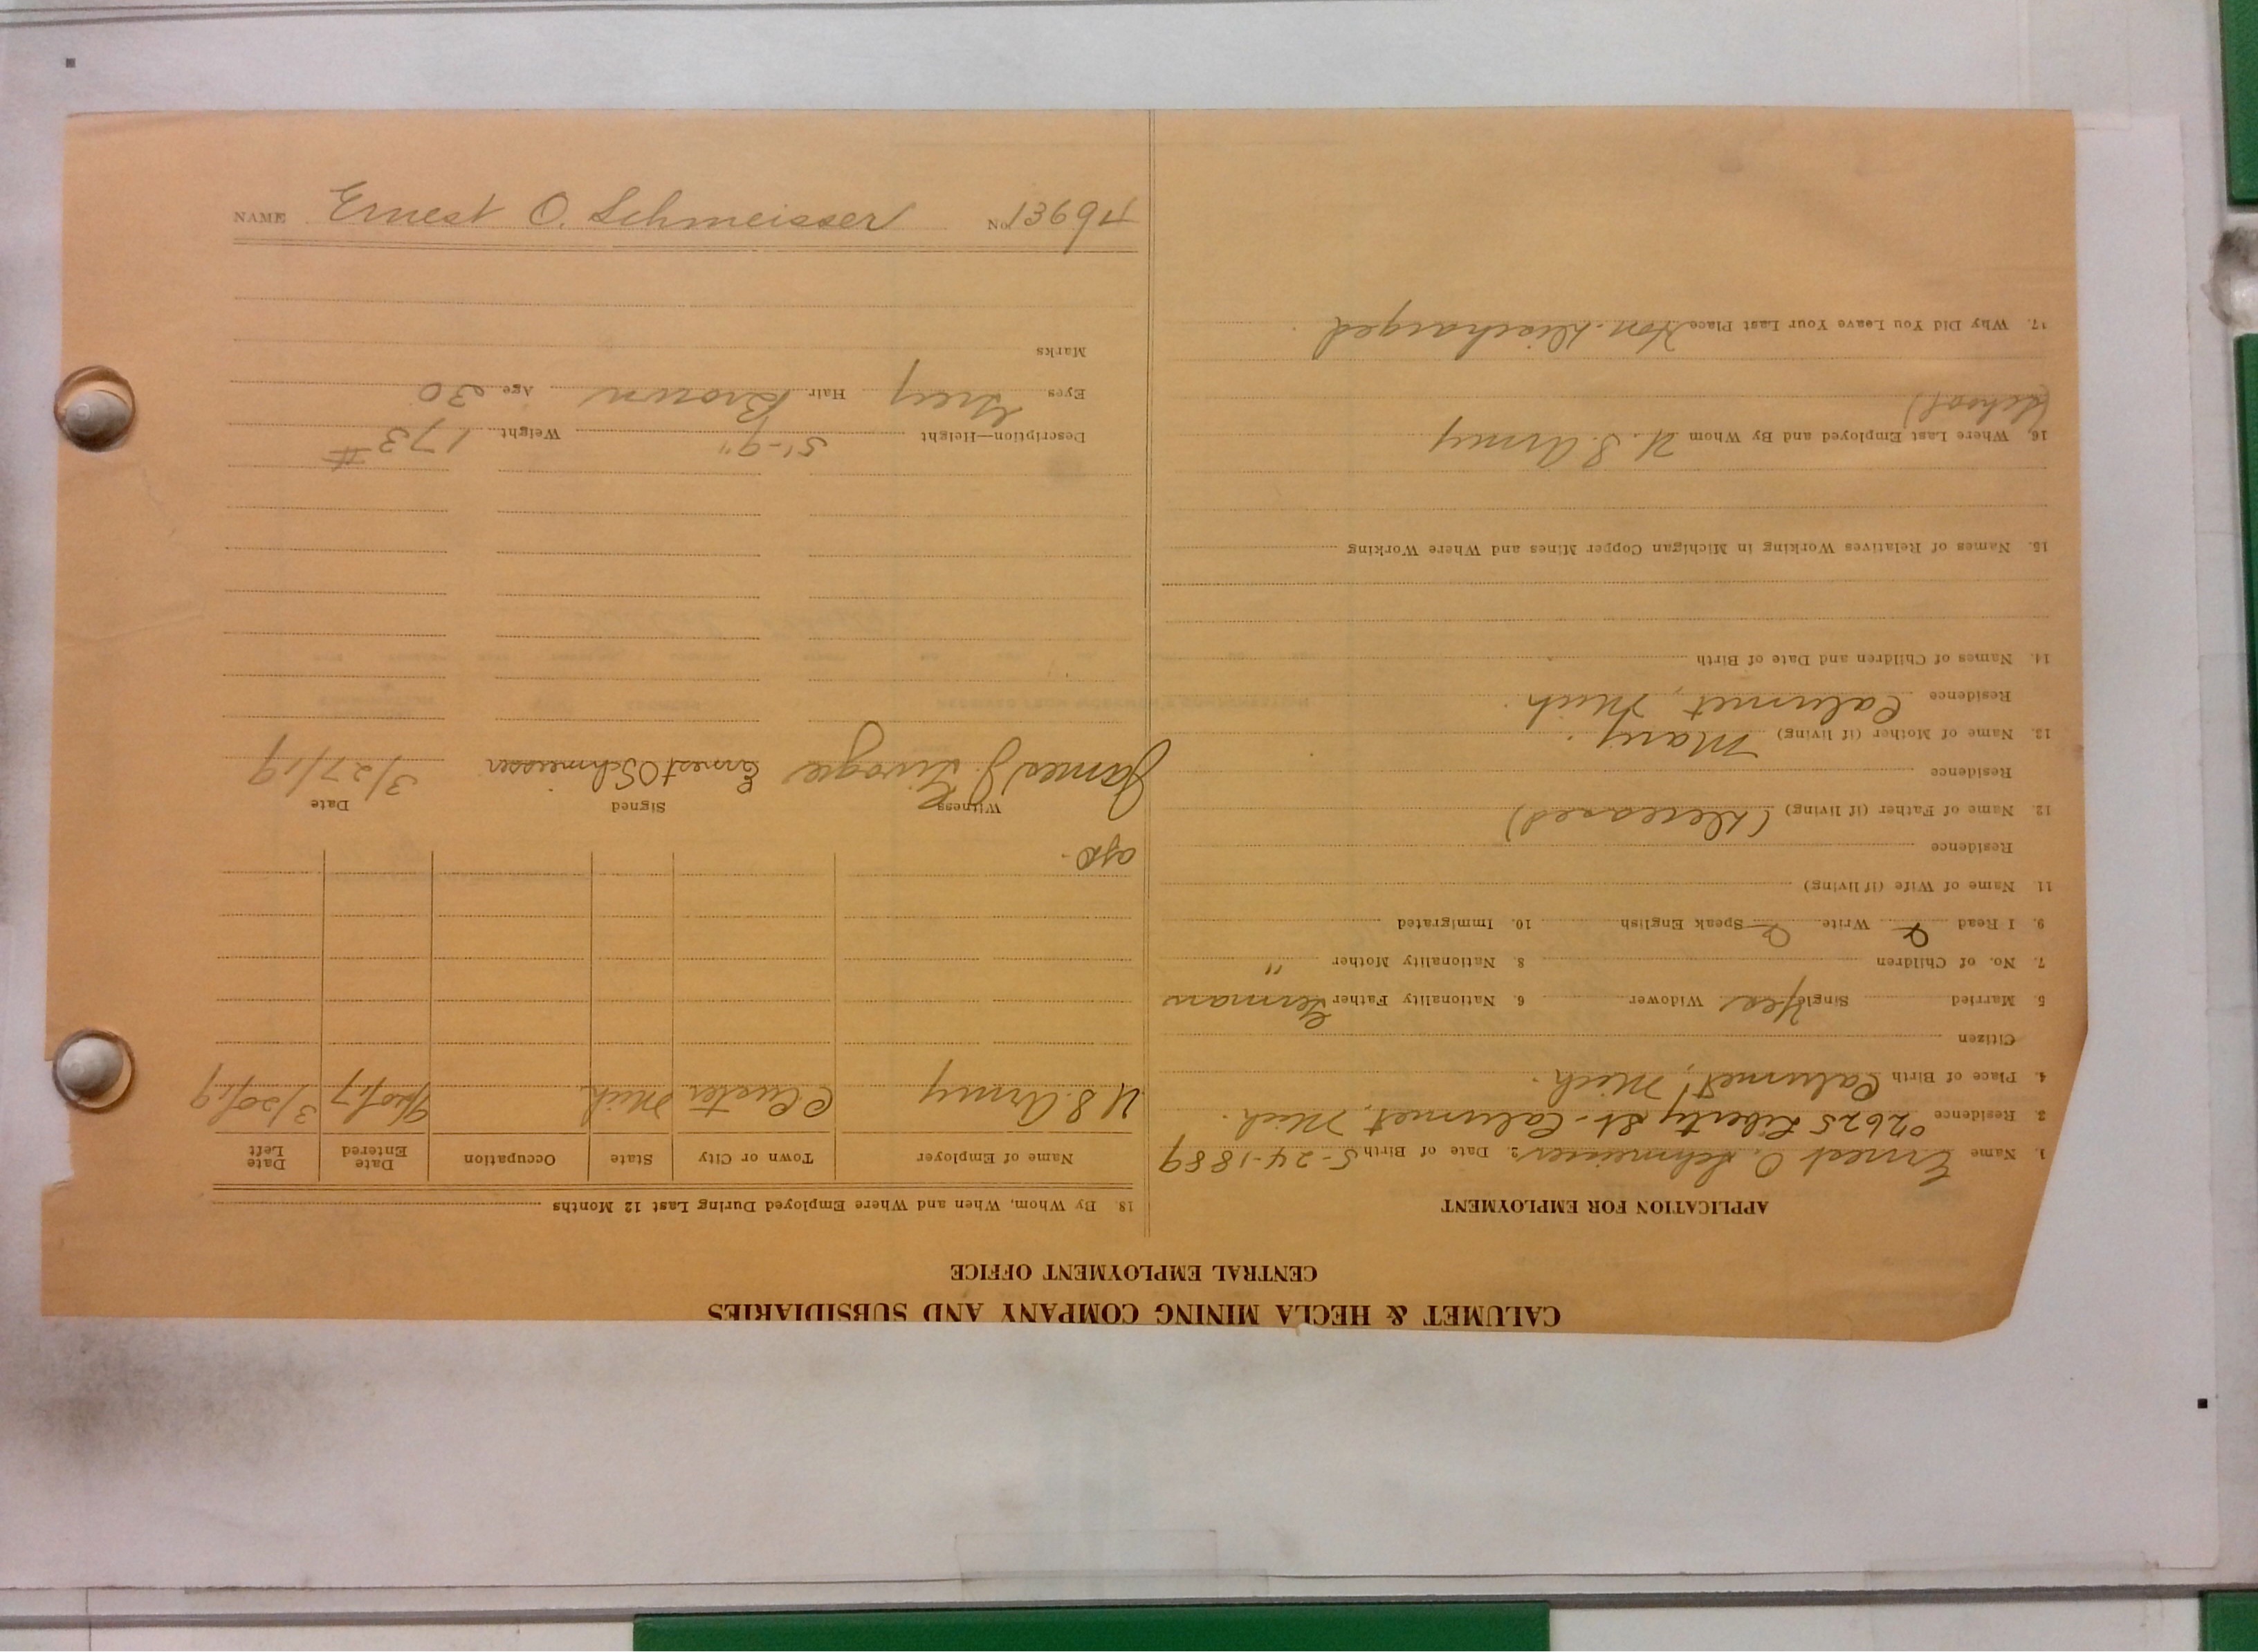 CALUMET & HECLA MINING COMPANY AND SUBSIDIARIES
CENTRAL EMPLOYMENT OFFICE
APPLICATION FOR EMPLOYMENT
1. Name Ernest O. Schmeisser 2. Date of Birth 5-24-1889
3. Residence 2625 Liberty St - Calumet, Mich.
4. Place of Birth Calumet, Mich.
Citizen
5. Married Single Yes Widower 6. Nationality Father German
7. No. of Children 8. Nationality Mother "
9. I Read Write Speak English 10. Immigrated
11. Name of Wife (if living)
Residence
12. Name of Father (if living) (Deceased)
Residence
13. Name of Mother (if living) Mary
Residence Calumet, Mich.
14. Names of Children and Date of Birth
15. Names of Relatives Working in Michigan Copper Mines and Where Working
16. Where Last Employed and By Whom U. S. Army
(School)
17. Why Did You Leave Your Last Place Hon. Discharged
18. By Whom, When and Where Employed During Last 12 Months
Name of Employer Town or City State Occupation Date Entered Date Left
U S. Army Custer Mich 3/20/19
Witness Signed Date
James J. Ernest O Schmeisser 3/27/19
Description—Height 5'-9" Weight 173 #
Eyes Grey Hair Brown Age 30
Marks
NAME Ernest O. Schmeisser No. 13694